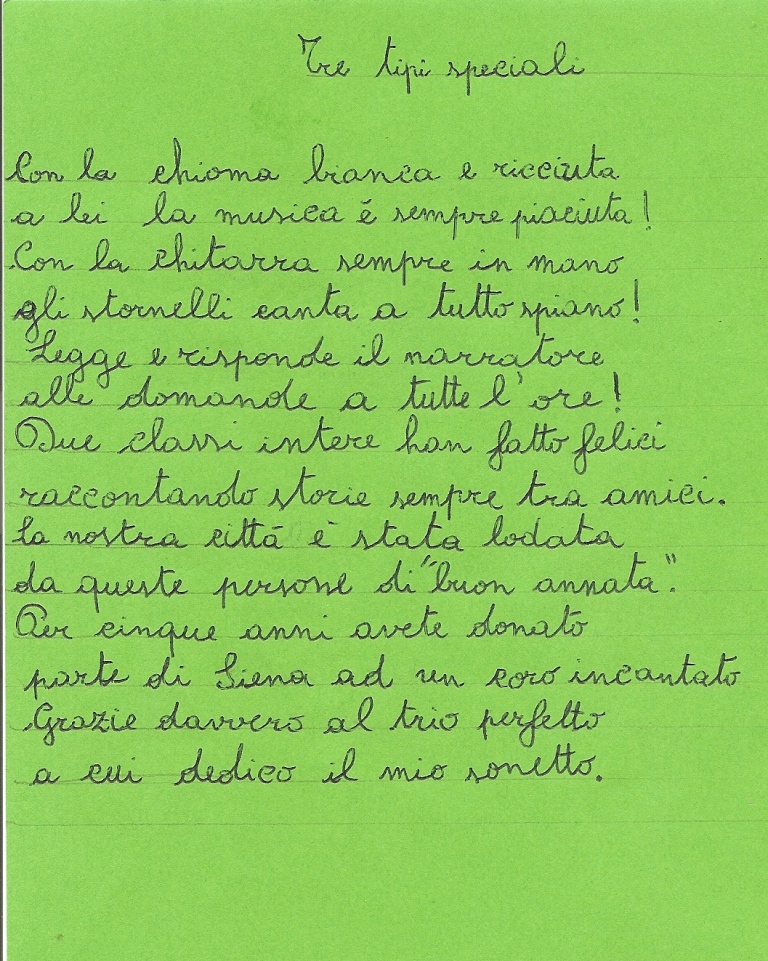 Tre tipi speciali
Con la chioma bianca e ricciuta
a lei la musica è sempre piaciuta!
Con la chitarra sempre in mano
gli stornelli canta a tutto spiano!
Legge e risponde il narratore
alle domande a tutte l'ore!
Due classi intere han fatto felici
raccontando storie sempre tra amici.
La nostra città è stata lodata
da queste persone di "buon annata".
Per cinque anni avete donato
parte di Siena ad un coro incantato
Grazie davvero al trio perfetto
a cui dedico il mio sonetto.